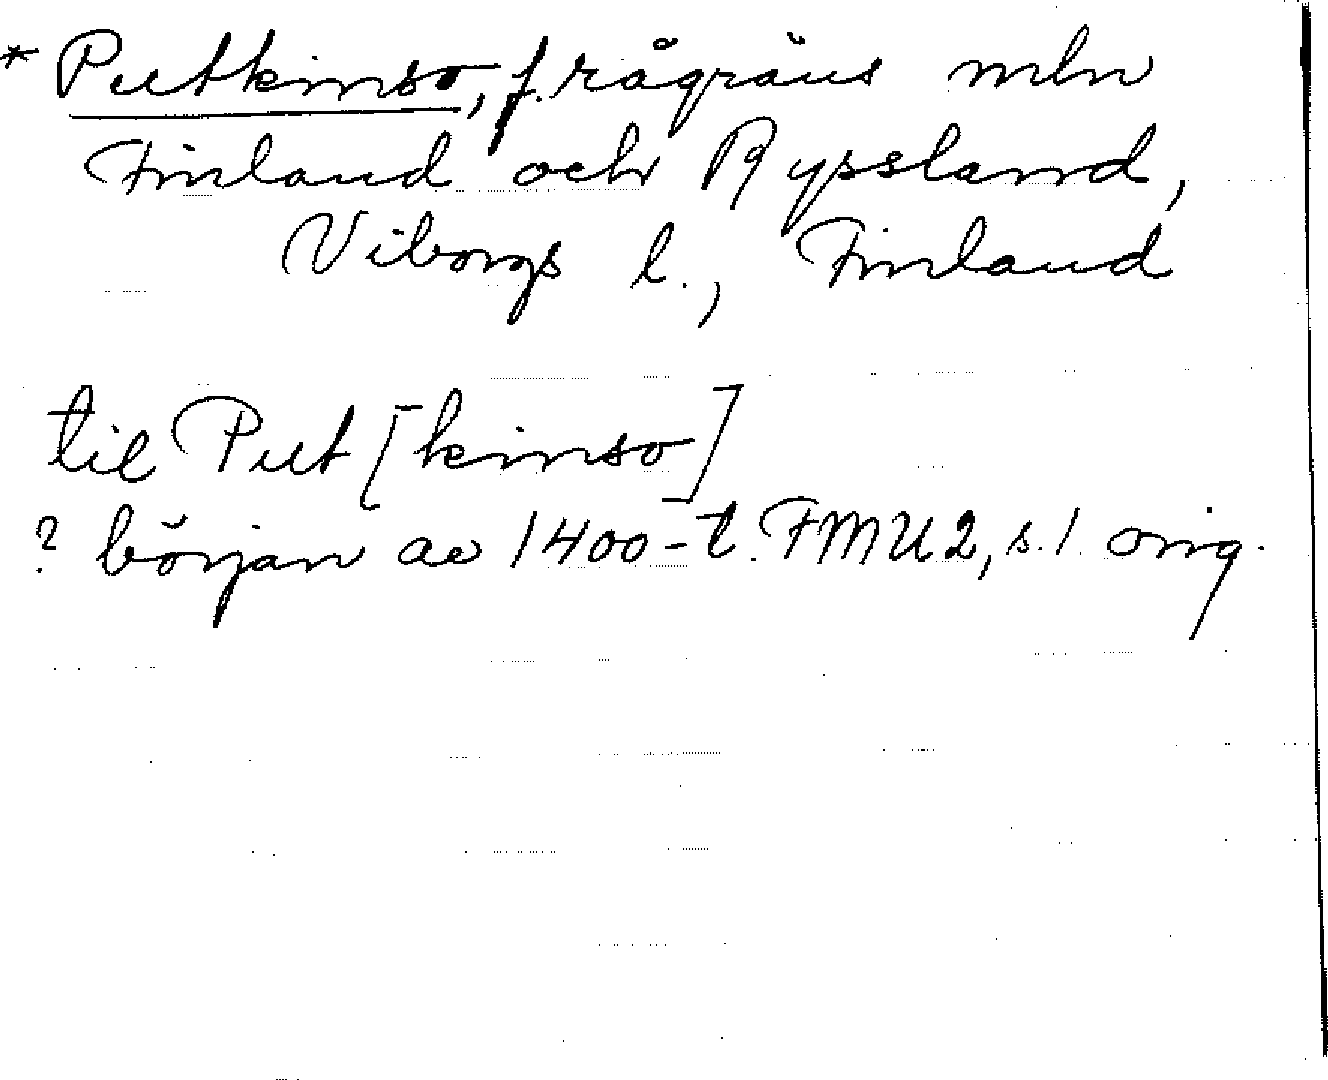 * Putkinso, f. rågräns mln
Finland och Ryssland,
Viborgs l., Finland
til Put [kinso]
? början av 1400-t. FMU2, s. 1. orig.